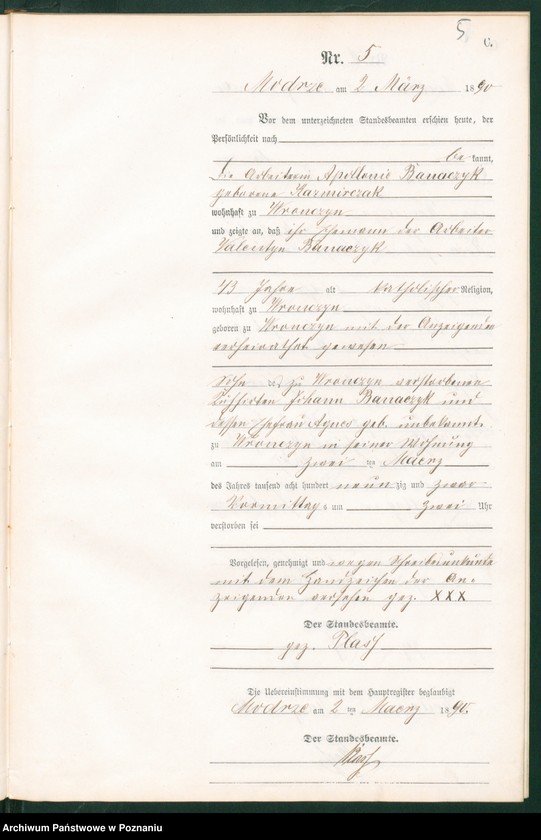 5
C.
Nr. 5
Modrze am 2 März 1890
Vor dem unterzeichneten Standesbeamten erschien heute, der
Persönlichkeit nach
be kannt,
die Arbeiterin Apollonie Banaczyk
geborene Kazmirczak
wohnhaft zu Wronczyn
und zeigte an, daß ihr Ehemann der Arbeiter
Valentyn Banaczyk
43 Jahre alt katholischer Religion,
wohnhaft zu Wronczyn
geboren zu Wronczyn mit der Anzeigenden
verheirathet gewesen
Sohn des zu Wronczyn verstorbenen
Johann Banaczyk und
dessen Ehefrau Agnes geb. unbekannt
zu Wronczyn in seiner Wohnung
am zwei ten Maerz
des Jahres tausend acht hundert neun zig und zwar
Vormittags um zwei Uhr
verstorben sei
Vorgelesen, genehmigt und wegen Schreibensunkunde
mit dem Handzeichen der An-
zeigenden versehen gez. XXX
Der Standesbeamte.
gez.
Die Uebereinstimmung mit dem Hauptregister beglaubigt
Modrze am 2 ten Maerz 1890.
Der Standesbeamte.
Archiwum Państwowe w Poznaniu